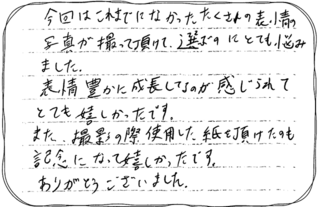 今回はこれまでになかったたくさんの表情の
写真が撮って頂けて、選ぶのにとても悩み
ました。
表情豊かに成長してるのが感じられて
とても嬉しかったです。
また、撮影の際使用した紙を頂けたのも
記念になって嬉しかったです。
ありがとうございました。